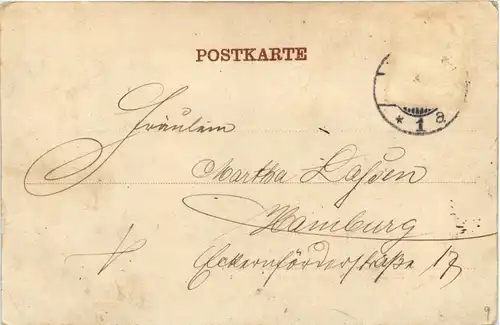 POSTKARTE
* 1 a
Fräulein
Martha Lassen
Hamburg
Eckernförderstraße 17
9